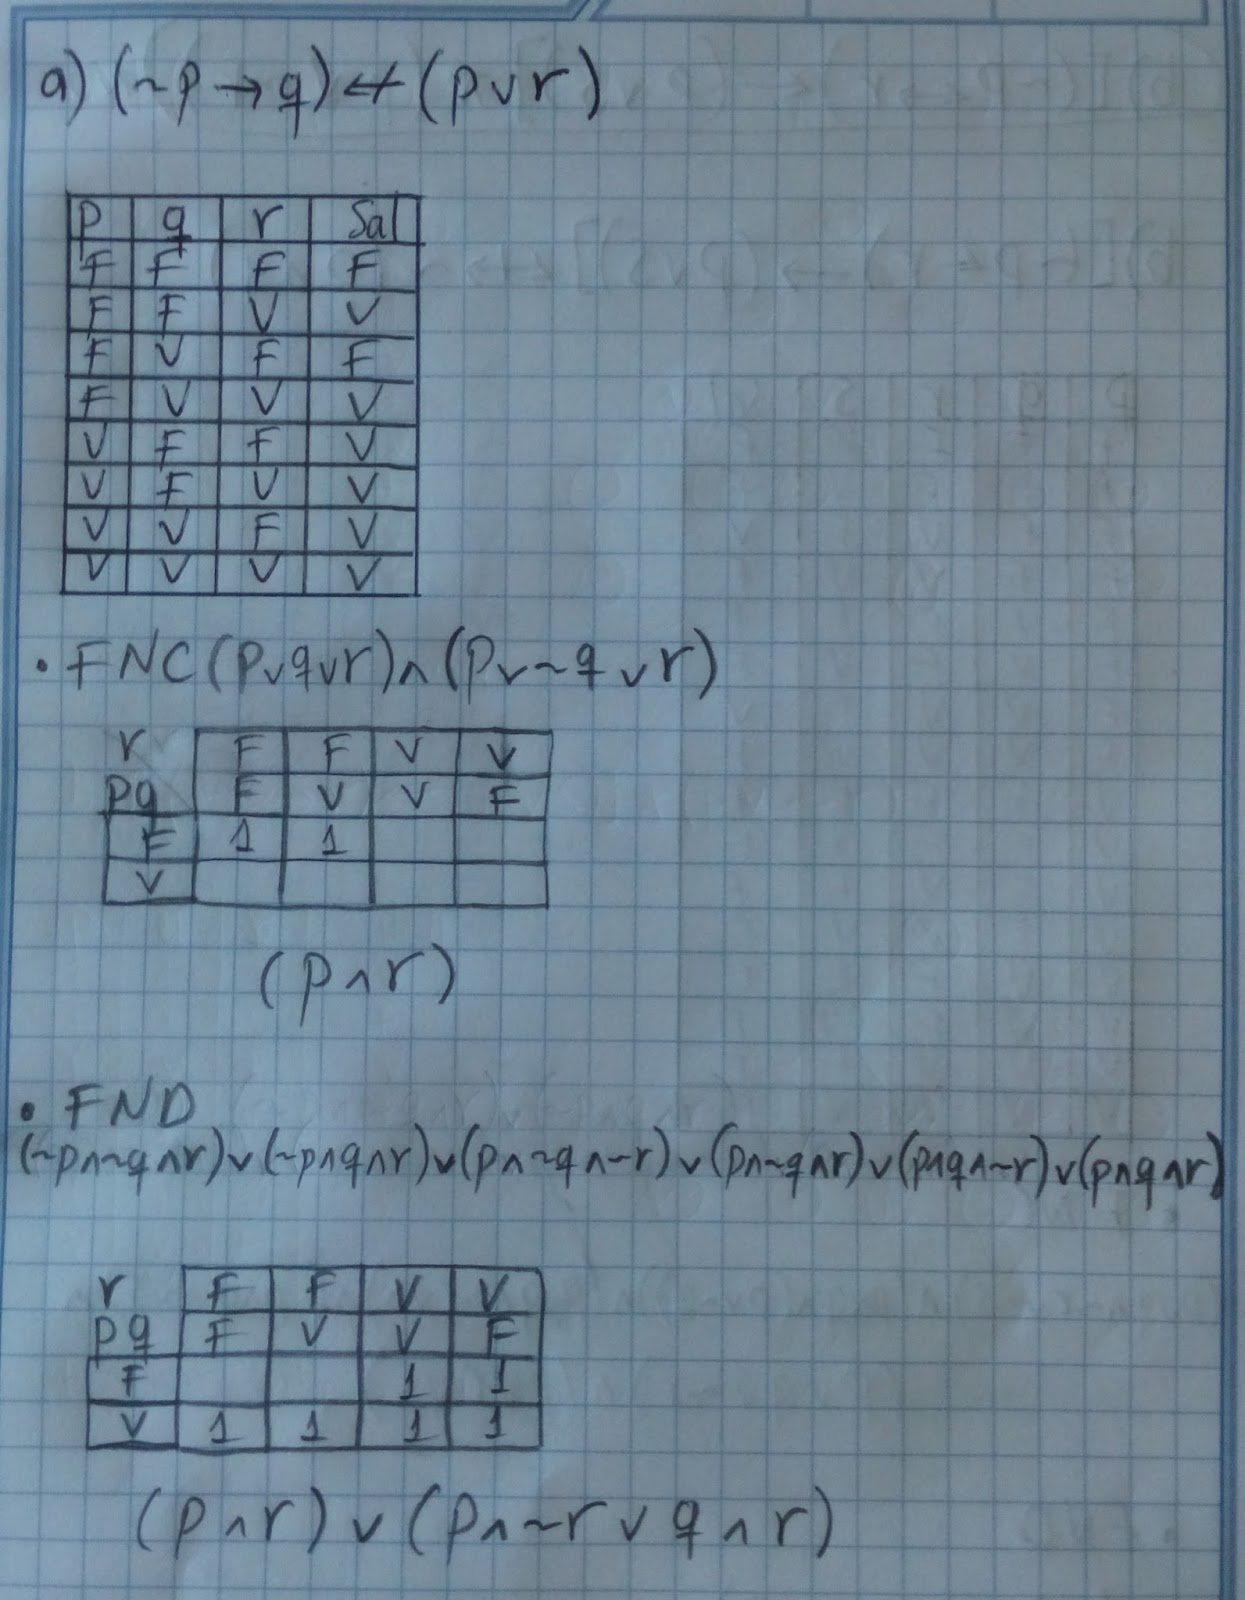 a) (~p → q) ↔ (p ∨ r)
p q r Sal
F F F F
F F V V
F V F F
F V V V
V F F V
V F V V
V V F V
V V V V
• FNC (p ∨ q ∨ r) ∧ (p ∨ ~q ∨ r)
r F F V V
pq F V V F
F 1 1
V
(p ∧ r)
• FND
(~p ∧ ~q ∧ r) ∨ (~p ∧ q ∧ r) ∨ (p ∧ ~q ∧ ~r) ∨ (p ∧ ~q ∧ r) ∨ (p ∧ q ∧ ~r) ∨ (p ∧ q ∧ r)
r F F V V
pq F V V F
F 1 1
V 1 1 1 1
(p ∧ r) ∨ (p ∧ ~r ∨ q ∧ r)